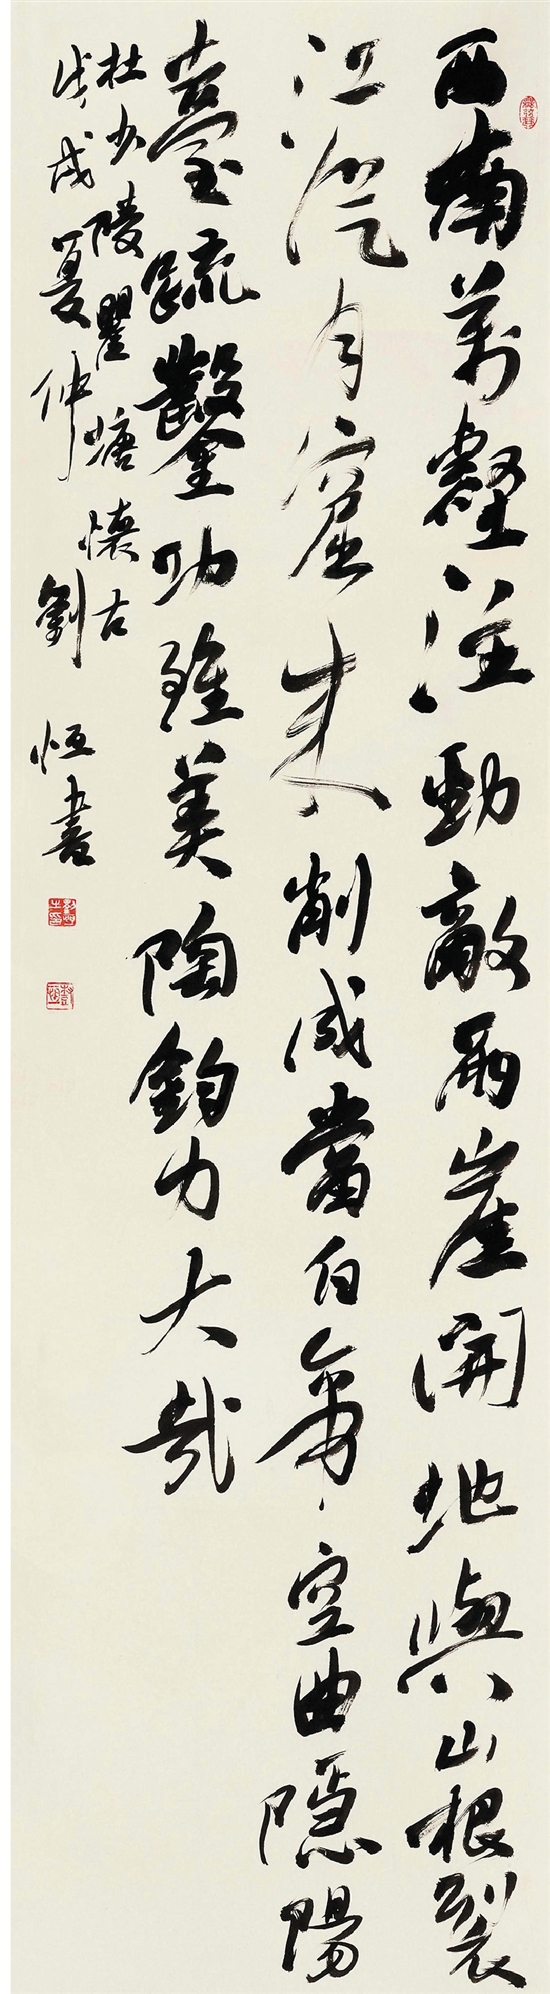 西南萬壑注勁敵兩崖開地與山根裂
江從月窟來削成當白帝空曲隱陽
臺疏鑿功雖美陶鈞力大哉
杜少陵瞿塘懷古
戊戌夏仲劉恒書